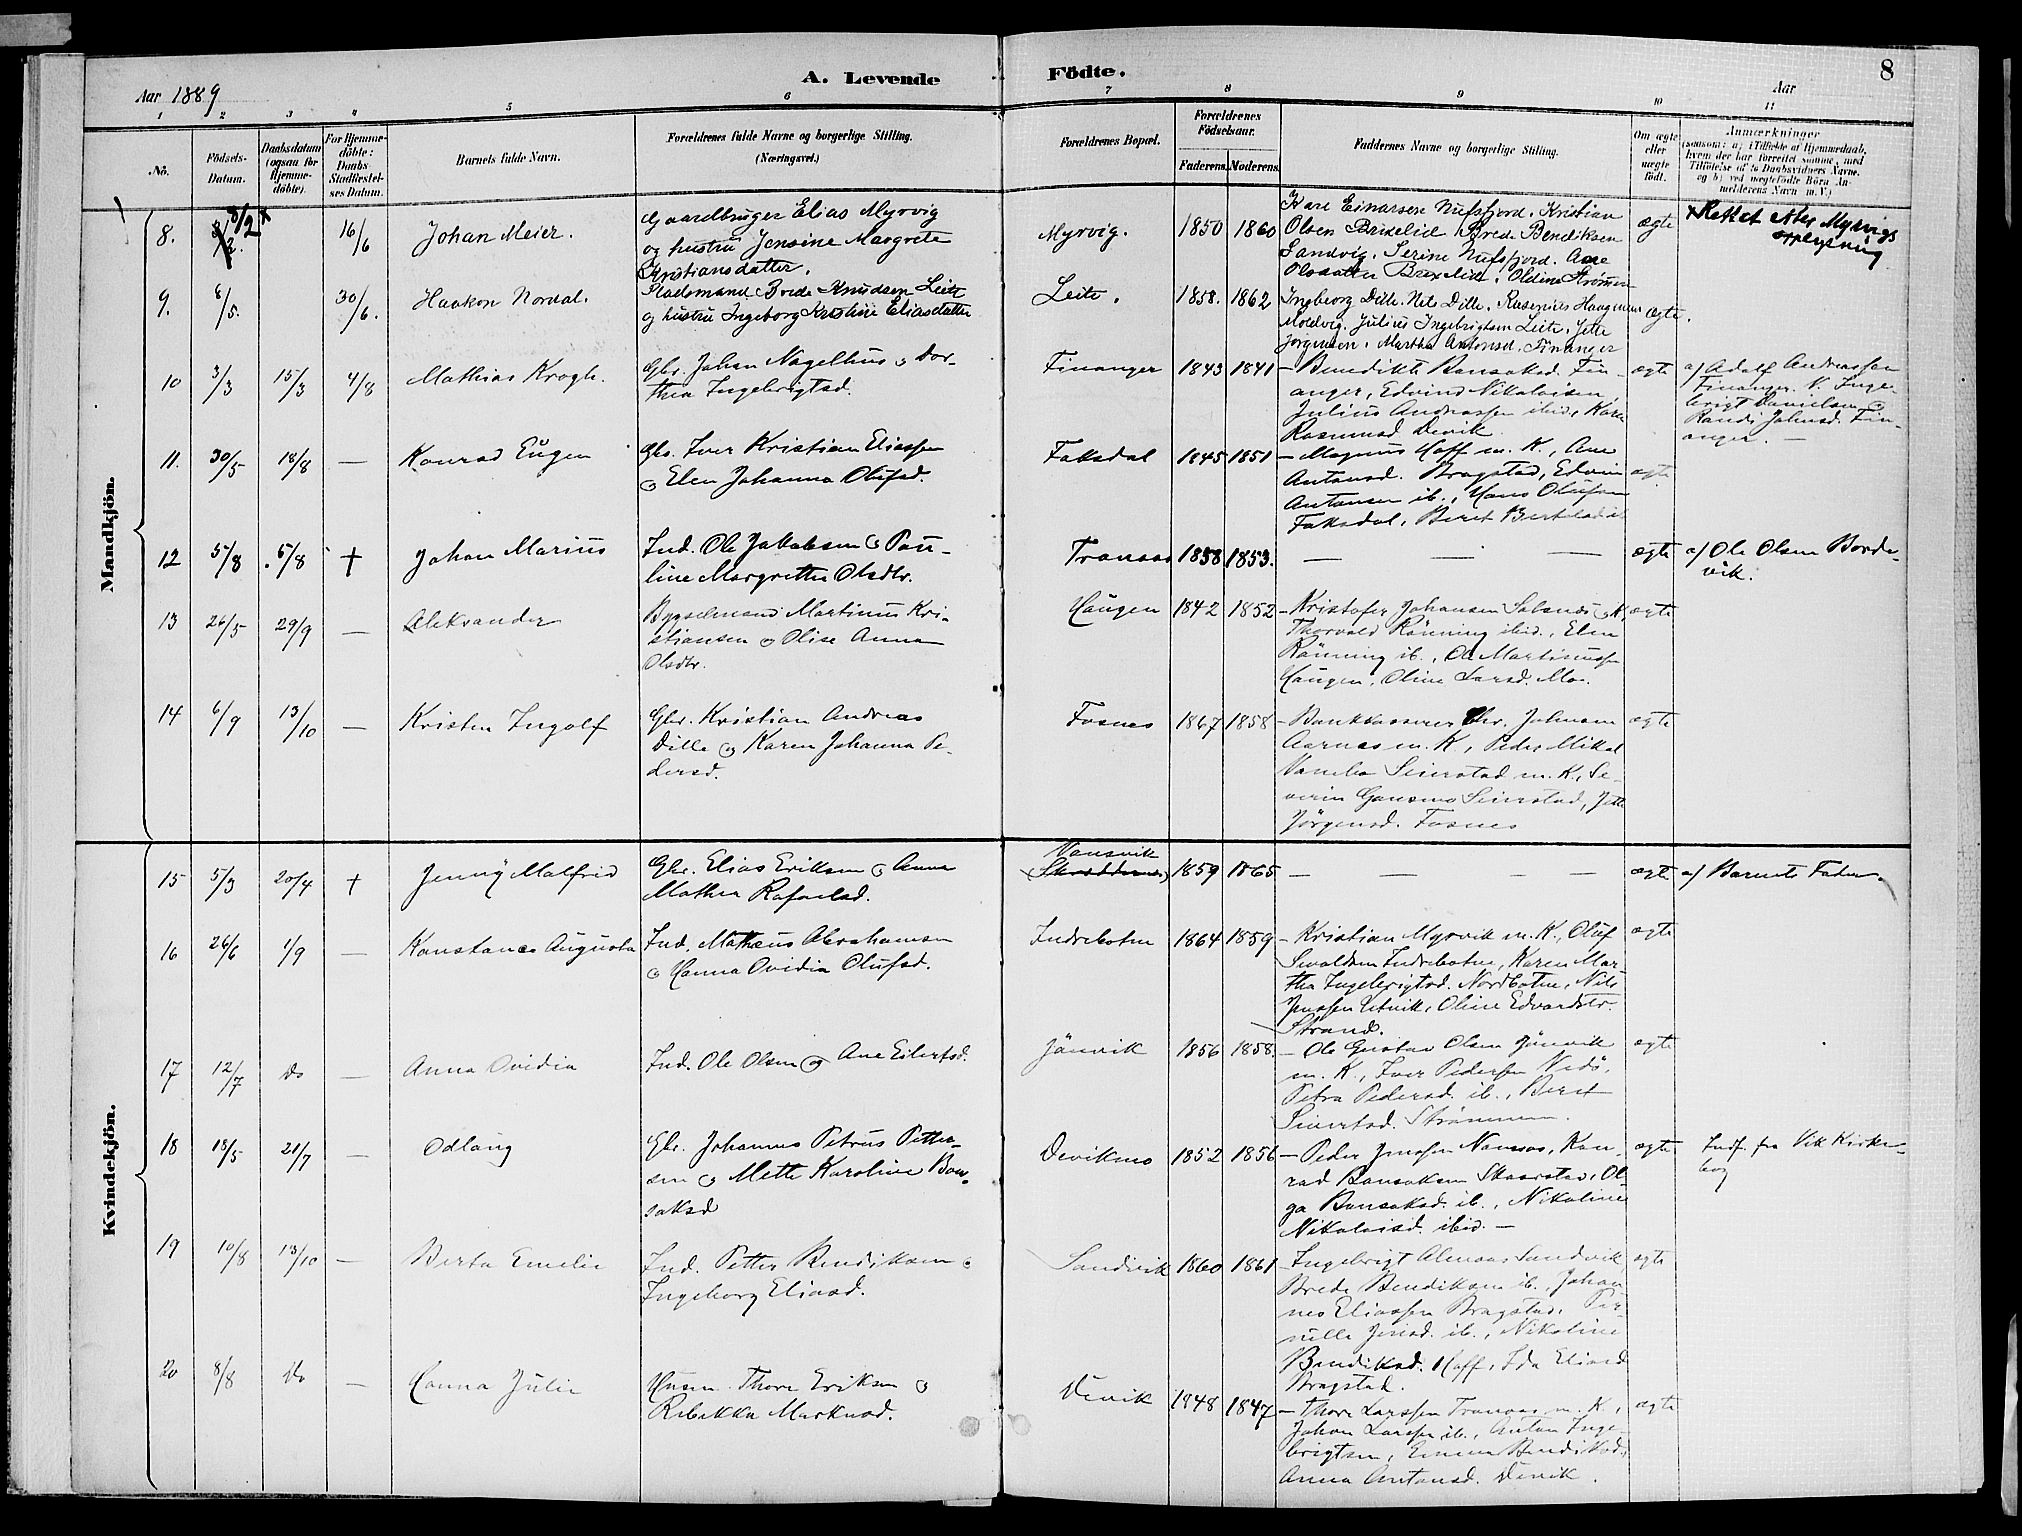 A. Levende Födte.
8
Aar 1889
Aar
1 2 3 4 5 6 7 8 9 10 11
No.
Födsels-Datum.
Daabsdatum (ogsaa for Hjemme-döbte).
For Hjemme-döbte: Daabs-Stadfæstel-ses Datum.
Barnets fulde Navn.
Forældrenes fulde Navne og borgerlige Stilling. (Næringsvei.)
Forældrenes Bopæl.
Forældrenes Födselsaar.
Faderens. Moderens.
Faddernes Navne og borgerlige Stilling.
Om ægte eller uægte födt.
Anmærkninger
(saasom: a) i Tilfælde af Hjemmedaab,
hvem der har forrettet samme, med
Tilföielse af to Daabsvidners Navne,
og b) ved uægtefödte Börn An-
melderens Navn m. V.)
Mandkjön.
8. 8/2 x 16/6 Johan Meier.
Gaardbruger Elias Myrvig
og hustru Jensine Margrete
Kristiansdatter.
Myrvig. 1850 1860
Kare Einarsen Nufsfjord, Kristian
Olsen Brixelid, Brede Bendiksen
Sandvig, Serine Nufsfjord, Ane
Olsdatter Brexelid, Oldine Strømmen
ægte
x Rettet etter Myrvigs
opplysning
9. 8/5. 30/6. Haakon Nordal.
Pladsmand Brede Knudsen Leite
og hustru Ingeborg Kristine Eliasdatter
Leite. 1858. 1862
Ingeborg Dille, Nils Dille, Rasenius Haagensen
Moldvig, Julius Ingebrigtsen Leite, Jette
Jørgensen, Martha Antonsd. Finanger
ægte.
10 3/3 15/3 4/8 Mathias Krogh.
Gbr. Johan Nagelhus o Dor-
thea Ingebrigtsd.
Finanger 1843 1841
– Benedikte Bansaksd. Fin-
anger, Edvind Nikolaisen
Julius Andreassen ibid, Kare
Rasmusd Devik
ægte
a/ Adolf Andreassen
Finanger. V. Inge-
brigt Danielsen o
Randi Johnsd. Fin-
anger. –
11. 30/5 18/8 — Konrad Eugen
Gbr. Iver Kristian Eliassen
o Elen Johanna Olufsd.
Faksdal 1845 1851
– Magnus Hoff m. K., Ane
Antonsd. Bragstad, Edvin
Antonsen ib., Hans Olufsen
Faksdal, Beret Bertelsd ib
ægte
12 5/8 5/8 † Johan Marius
Ind. Ole Jakobsen o Pau-
line Margrethe Olsdtr.
Tranaas 1858 1853.
— — —
ægte
a/ Ole Olsen Borde-
vik.
13 26/5 29/9 — Aleksander
Bygselmand Martinus Kri-
stiansen o Olise Anna
Olsdtr.
Haugen 1842 1852
– Kristofer Johansen Salsnæs m K,
Thorvald Rönning ibid., Elen
Rönning ib., Ole Martinussen
Haugen, Oline Larsd. Mo.
ægte
14 6/9 13/10 — Kristen Ingolf
Gbr. Kristian Andreas
Dille o Karen Johanna Pe-
dersd.
Fosnes 1867 1858
– Bankkasserer Chr. Johnsen
Aarnes m. K, Peder Mikal
Vanebo Seierstad m. K., Se-
verin Gansmo Seierstad, Jette
Jörgensd. Fosnes
ægte
Kvindekjön.
15 5/3 20/4 † Jenny Malfrid
Gbr. Elias Eriksen o Anna
Mathea Rafaelsd.
Vansvik
1859 1865
— — — —
ægte
a/ Barnets Fader.
16 26/6 1/9 — Konstance Augusta
Ind. Matheus Abrahamsen
o Hanna Ovidia Olufsd.
Indrebotn 1864 1859
– Kristian Myrvik m. K., Oluf
Sivaldsen Indrebotn, Karen Mar-
tha Ingebrigtsd. Nordbotn, Nils
Jenssen Utvik, Oline Edvardsdtr.
Strand.
ægte
17 12/7 Do — Anna Ovidia
Ind. Ole Olsen o Ane Eilertsd.
Jönvik 1856 1858.
– Ole Gustav Olsen Jönvik
m. K., Iver Pedersen Nedö,
Petra Pedersd. ib., Beret
Seierstad. Strömmen.
ægte
18 18/5 21/7 — Odlaug
Gbr. Johannes Petrus Petter-
sen o Mette Karoline Ban-
saksd
Devikmo 1852 1856
– Peder Jenssen Namsos, Kon-
rad Bansaksen Skaarstad, Ol-
ga Bansaksd. ib., Nikoline
Nikolaisd. ibid. –
ægte
Indf. fra Vik Kirke-
bog
19 10/8 13/10 — Berta Emelie
Ind. Petter Bendiksen o
Ingeborg Eliasd.
Sandvik 1860 1861
– Ingebrigt Almaas Sandvik,
Brede Bendiksen ib., Johan-
nes Eliassen Bragstad, Per-
nille Jensd. ib., Nikoline
Bendiksd. Hoff, Ida Eliasd
Bragstad.
ægte
20 8/8 Do — Hanna Julie
Husm. Thore Eriksen o
Rebekka Marknsd.
Devik 1848 1847
– Thore Larssen Tranaas m. K,
Johan Larssen ib., Anton Inge-
brigtsen, Emma Bendiksd.
Anna Antonsd. Devik.
ægte